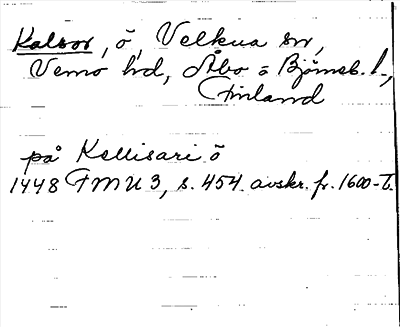 Kalsor, ö, Velkua sn,
Vemo hd, Åbo o Björneb. l.,
Finland
på Kellisari ö
1448 FMU 3, s. 454. avskr. fr. 1600-t.